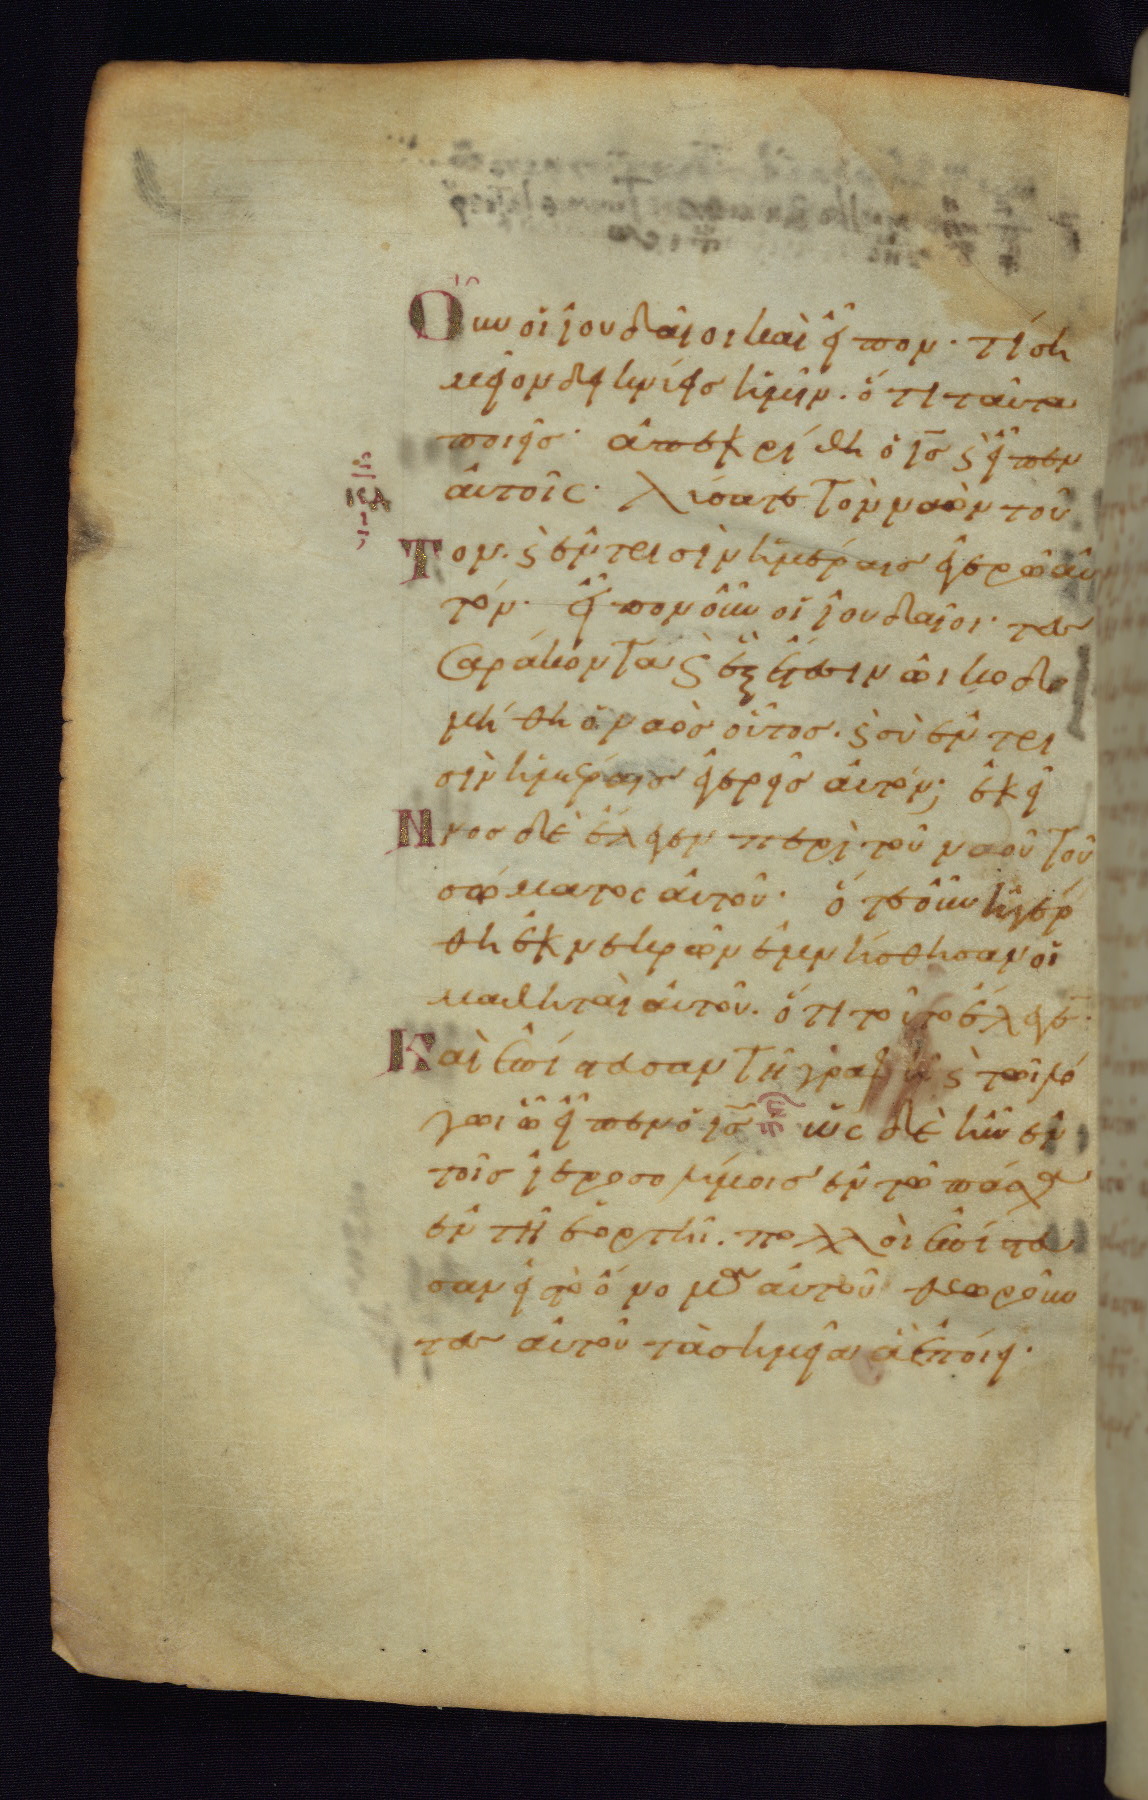 Οὖν οἱ ἰουδαῖοι καὶ εἶπον· τί ση
μεῖον δεικνύεις ἡμῖν. ὅτι ταῦτα
ποιεῖς· ἀπεκρίθη ὁ ις̅ ϗ εἶπεν
αὐτοῖς· λύσατε τὸν ναὸν τοῦ
Τον. ϗ ἐν τρισὶν ἡμέραις ἐγερῶ αὐ
τόν· εἶπον οὖν οἱ ἰουδαῖοι· τεσ
σαράκοντα ϗ ἓξ ἔτεσιν ὠικοδο
μήθη ὁ ναὸς οὗτος. ϗ σὺ ἐν τρι
σὶν ἡμέραις ἐγερεῖς αὐτόν; ἐκεῖ
Νος δὲ ἔλεγεν περὶ τοῦ ναοῦ τοῦ
σώματος αὐτοῦ· ὅτε οὖν ἠγέρ
θη ἐκ νεκρῶν ἐμνήσθησαν οἱ
μαθηταὶ αὐτοῦ. ὅτι τοῦτο ἔλεγε·
Καὶ ἐπίστευσαν τῆ γραφῆ ϗ τῶι λό
γωι ὧ εἶπεν ὁ ις̅ ὡς δὲ ἦν ἐν
τοῖς ἱεροσολύμοις ἐν τῶ πάσχα
ἐν τῆ ἑορτῆ. πολλοὶ ἐπίστευ
σαν εἰς τὸ ὄνομα αὐτοῦ θεωροῦν
τες αὐτοῦ τὰ σημεῖα ἃ ἐποίει·